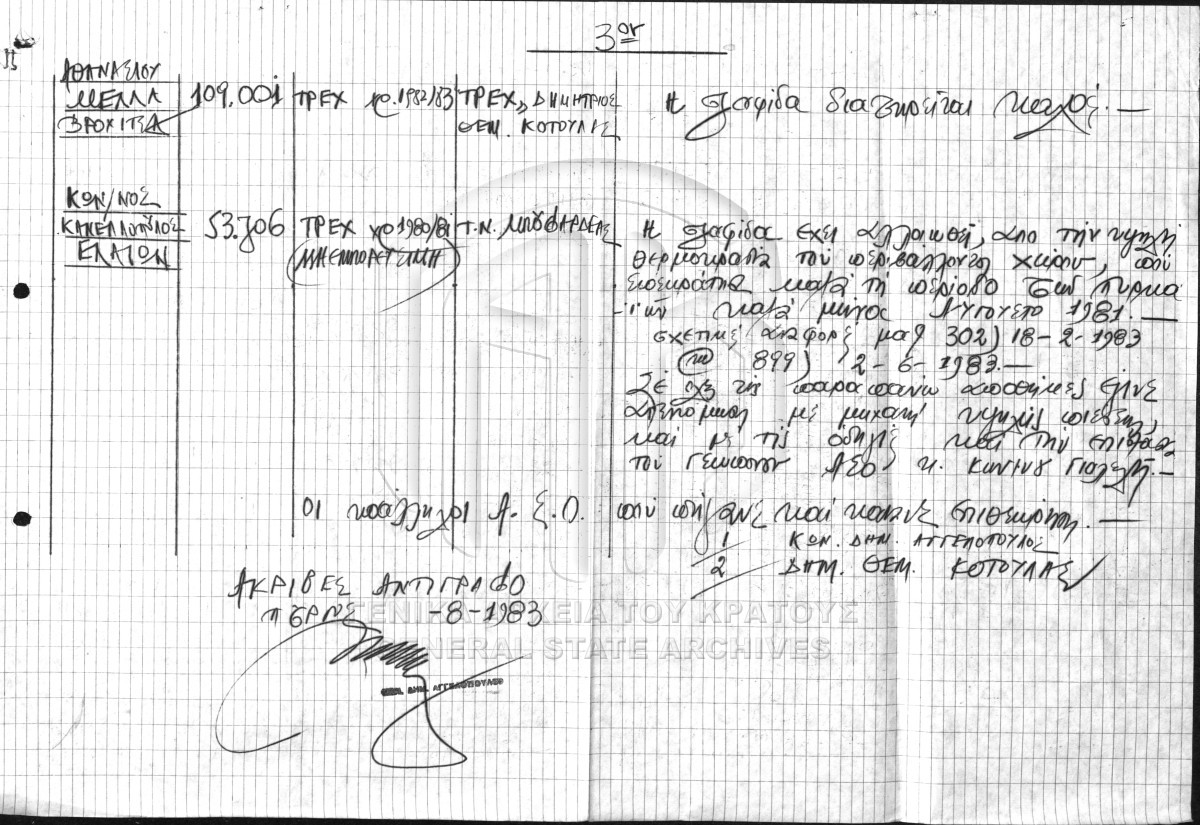 3ον
ΑΘΑΝΑΣΙΟΥ
ΜΕΛΛΑ 109.001 ΤΡΕΧ χρ. 1982/83 ΤΡΕΧ, ΔΗΜΗΤΡΙΟΣ Η σταφίδα διατηρείται καλώς. —
ΒΡΟΧΙΤΣΑ ΘΕΜ. ΚΟΤΟΥΛΑΣ
ΚΩΝ/ΝΟΣ
ΚΑΝΕΛΛΟΠΟΥΛΟΣ 53.706 ΤΡΕΧ χρ 1980/81 Τ.Ν. ΜΠΟΥΦΑΡΔΕΑΣ Η σταφίδα έχει αλλοιωθεί, από την υψηλή
ΕΛΑΙΩΝ ΜΗ ΕΜΠΟΡΕΥΣΙΜΗ θερμοκρασία του περιβάλλοντος χώρου, που
κατά τη περίοδο των πυρκα
-ιών κατά μήνας Αύγουστο 1981. —
σχετικές αναφορές μας 302) 18-2-1983
και 899) 2-6-1983. —
Σε όλες τις παραπάνω αποθήκες έγινε
απεντόμωση με μηχανή υψηλής πιέσεως,
και με τις οδηγίες και την επίβλεψη
του Γεωπόνου ΑΣΟ κ.
Οι υπάλληλοι Α.Σ.Ο. που πήγανε και κάνανε επιθεώρηση. —
1 ΚΩΝ. ΔΗΜ. ΑΓΓΕΛΟΠΟΥΛΟΣ
2 ΔΗΜ. ΘΕΜ. ΚΟΤΟΥΛΑΣ
ΑΚΡΙΒΕΣ ΑΝΤΙΓΡΑΦΟ
-8-1983
ΓΕΝΙΚΑ ΑΡΧΕΙΑ ΤΟΥ ΚΡΑΤΟΥΣ
GENERAL STATE ARCHIVES
ΚΩΝ. ΔΗΜ. ΑΓΓΕΛΟΠΟΥΛΟΣ